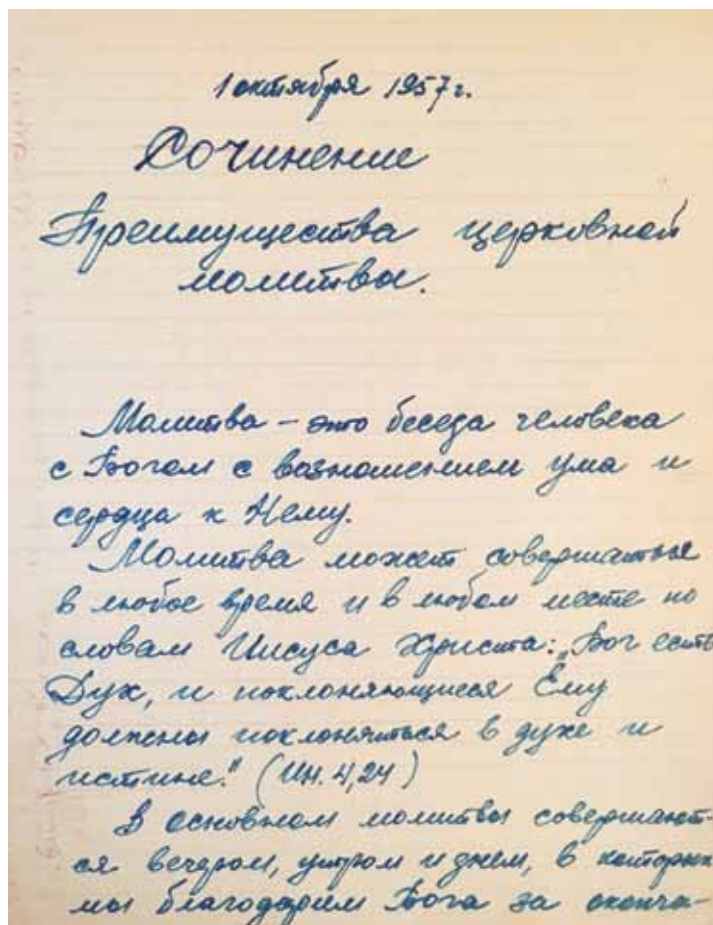 1 октября 1957 г.
Сочинение
Преимущества церковной
молитвы.
Молитва – это беседа человека
с Богом с возношением ума и
сердца к Нему.
Молитва может совершаться
в любое время и в любом месте по
словам Иисуса Христа: „Бог есть
Дух, и поклоняющиеся Ему
должны поклоняться в духе и
истине." (Ин. 4,24)
В основном молитвы совершают-
ся вечером, утром и днём, в которых
мы благодарим Бога за оконча-